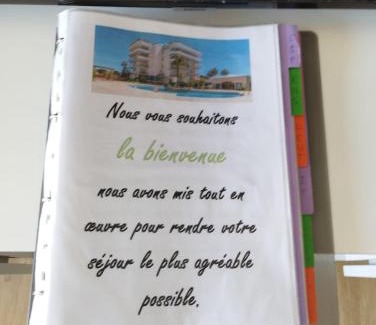 Nous vous souhaitons
la bienvenue
nous avons mis tout en
œuvre pour rendre votre
séjour le plus agréable
possible.